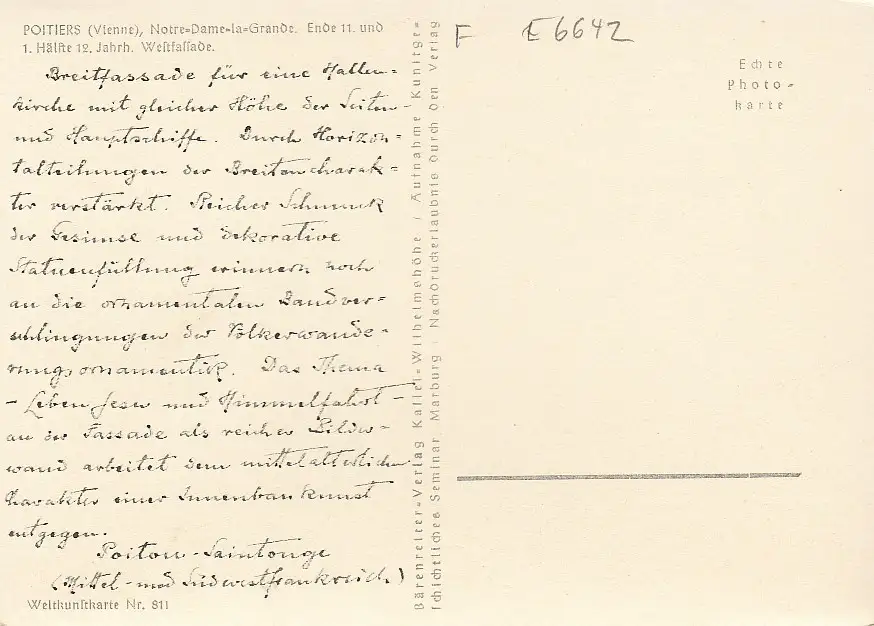 POITIERS (Vienne), Notre-Dame-la-Grande. Ende 11. und
1. Hälfte 12. Jahrh. Weſtfaſſade.
Breitfassade für eine Hallen-
kirche mit gleicher Höhe der Seiten-
und Hauptschiffe. Durch Horizon-
talteilungen der Breitencharak-
ter verstärkt. Reicher Schmuck
der Gesimse und dekorative
Statuenfüllung erinnern noch
an die ornamentalen Bandver-
schlingungen der Völkerwande-
rungsornamentik. Das Thema
- Leben Jesu und Himmelfahrt -
an der Fassade als reicher Bilder-
wand arbeitet dem mittelalterlichen
Charakter einer Innenbaukunst
entgegen.
Poitou-Saintonge
(Mittel- und Südwestfrankreich)
Weltkunſtkarte Nr. 811
Bärenreiter-Verlag Kaſſel-Wilhelmshöhe / Aufnahme Kunſtge-
ſchichtliches Seminar Marburg / Nachdruckerlaubnis durch den Verlag
F E6642
Echte
Photo-
karte